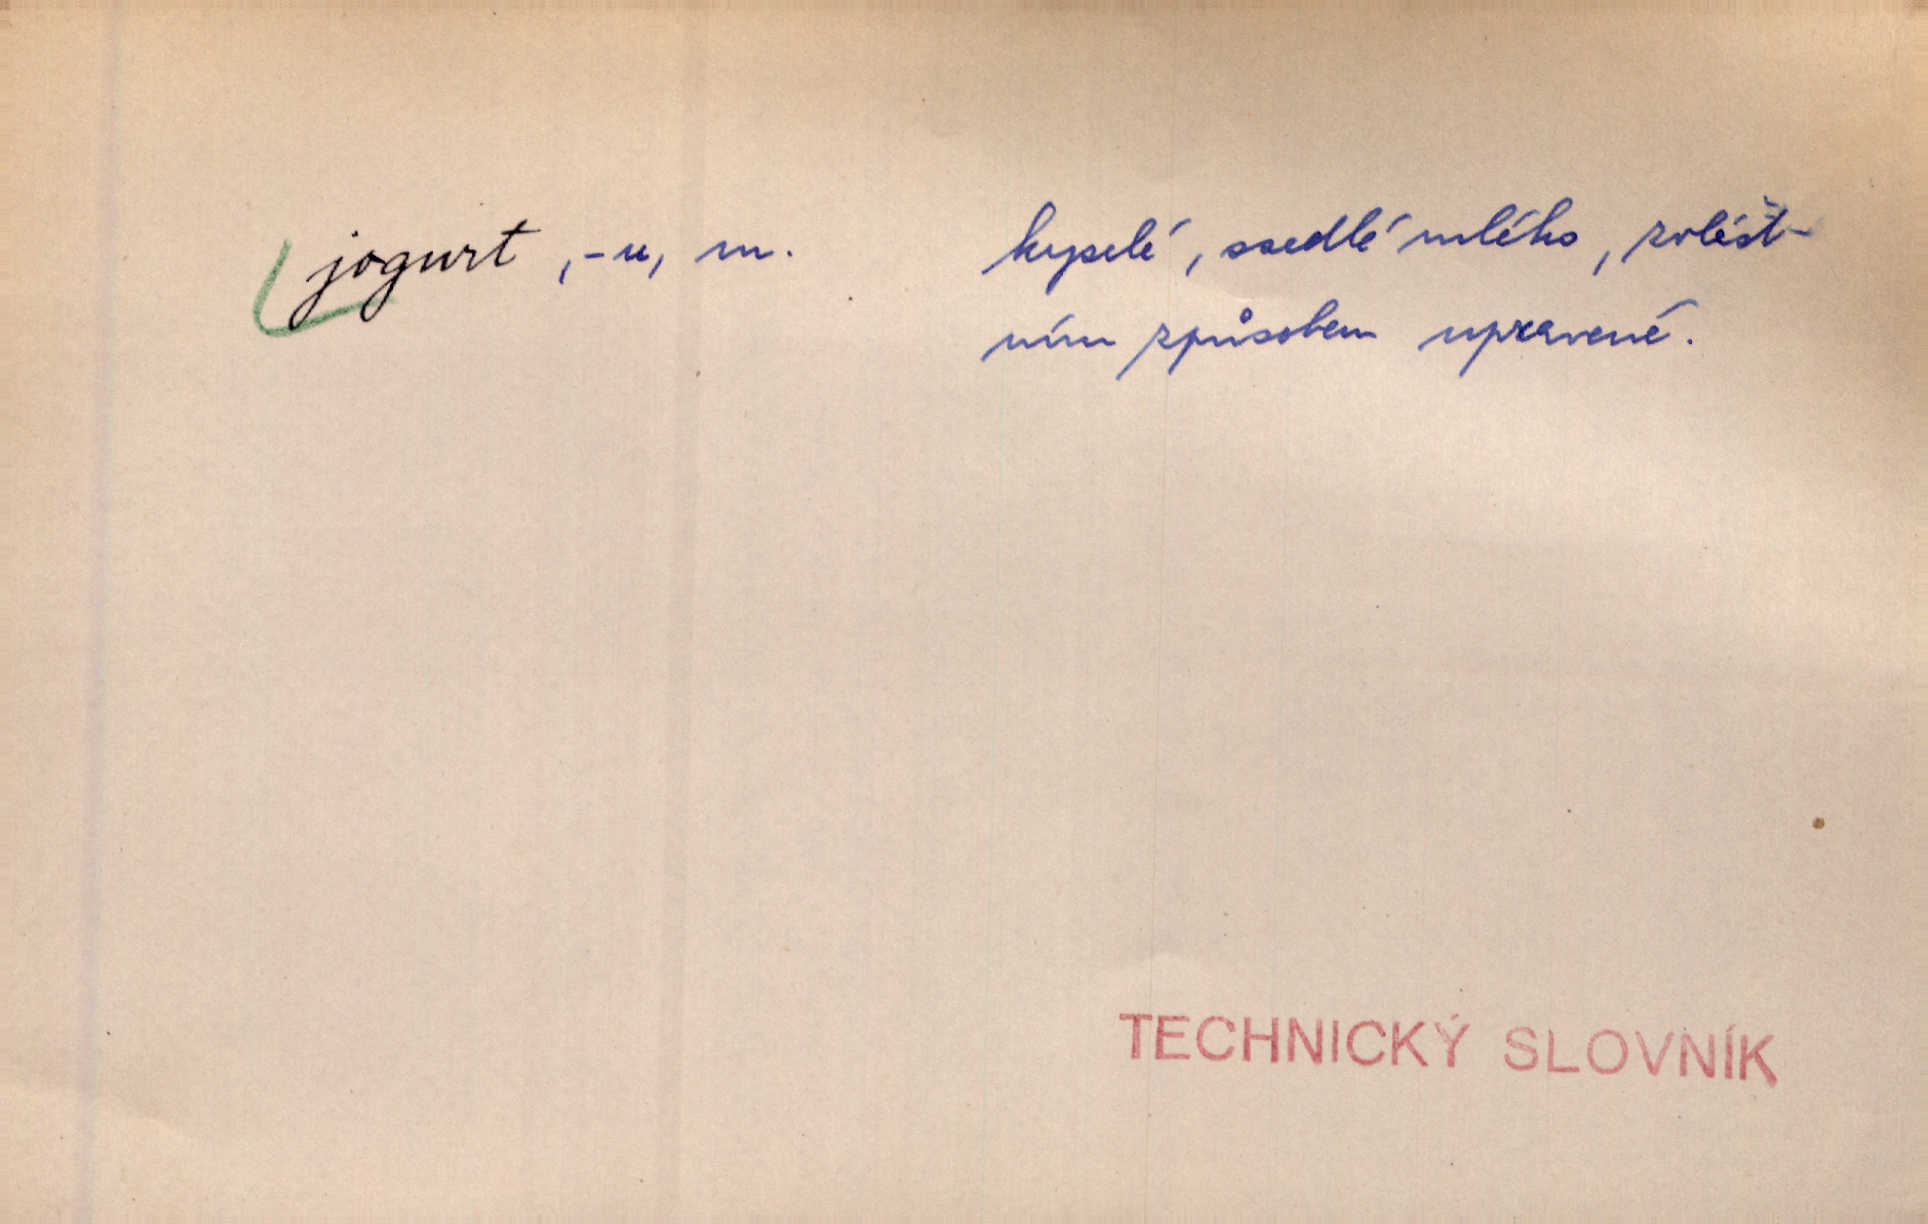 jogurt, -u, m. kyselé, ssedlé mléko, zvlášt-
ním způsobem upravené.
TECHNICKÝ SLOVNÍK